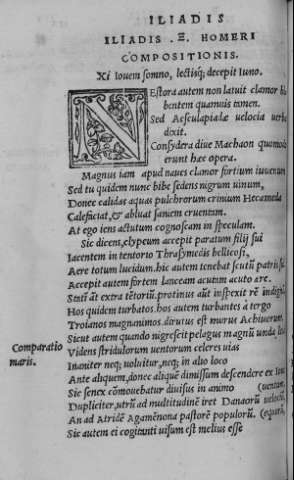 ILIADIS
ILIADIS .Ξ. HOMERI
COMPOSITIONIS.
Xi Iouem somno, lectisq; decepit Iuno.
NEstora autem non latuit clamor bi
bentem quamuis tamen.
Sed Aesculapialae uelocia uerba
dixit.
Consydera diue Machaon quomodo
erunt haec opera.
Magnus iam apud naues clamor fortium iuuenum
Sed tu quidem nunc bibe sedens nigrum uinum,
Donec calidas aquas pulchrorum crinium Hecameda
Calefaciat, & abluat saniem cruentam.
At ego iens actutum cognoscam in speculam.
Sic dicens, clypeum accepit paratum filij sui
Iacentem in tentorio Thrasymedis bellicosi,
Aere totum lucidum. hic autem tenebat scutū patris su
Accepit autem fortem lanceam acutam acuto aere.
Stetit āt extra tētoriū. protinus aūt inspexit rē indignā
Hos quidem turbatos. hos autem turbantes à tergo
Troianos magnanimos. dirutus est murus Achiuorum.
Sicut autem quando nigrescit pelagus magnū unda
Comparatio
maris.
Videns stridulorum uentorum celeres uias
Inaniter neq; uoluitur, neq; in alio loco
Ante aliquem, donec aliquē dimissum descendere ex
Sic senex cōmouebatur diuisus in animo (uentum,
Dupliciter, utrū ad multitudinē iret Danaorū
An ad Atridē Agamēnona pastorē populorū.
Sic autem ei cogitanti uisum est melius esse